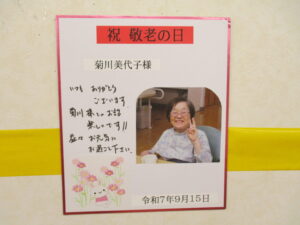 祝 敬老の日
菊川美代子様
いつも ありがとう
ございます
菊川様との お話
楽しいです!!
益々 お元気に
お過ごし下さい
令和7年9月15日